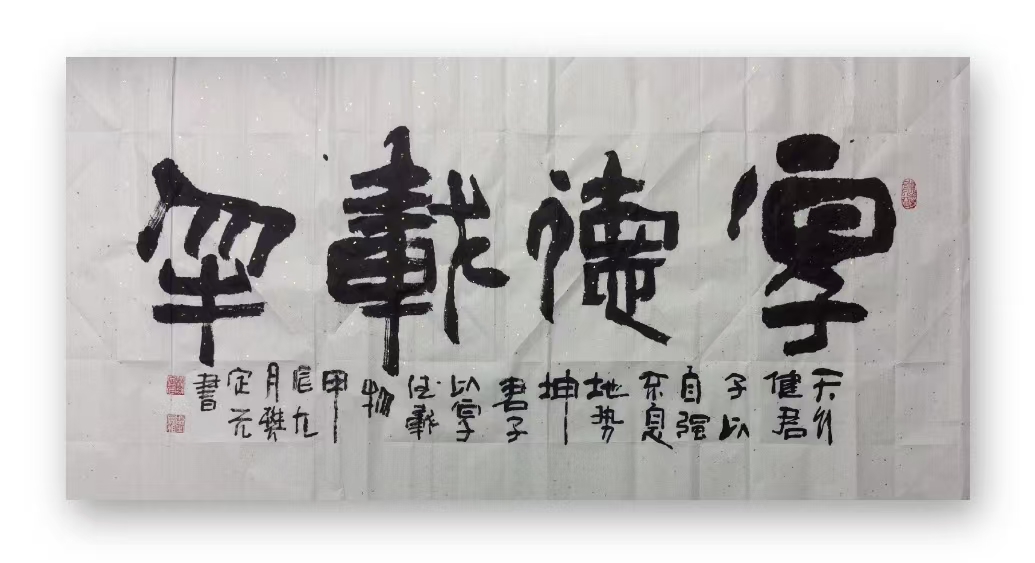 厚德載物
天行
健君
子以
自強
不息
地勢
坤
君子
以厚
德載
物
甲
辰九
月
定
書